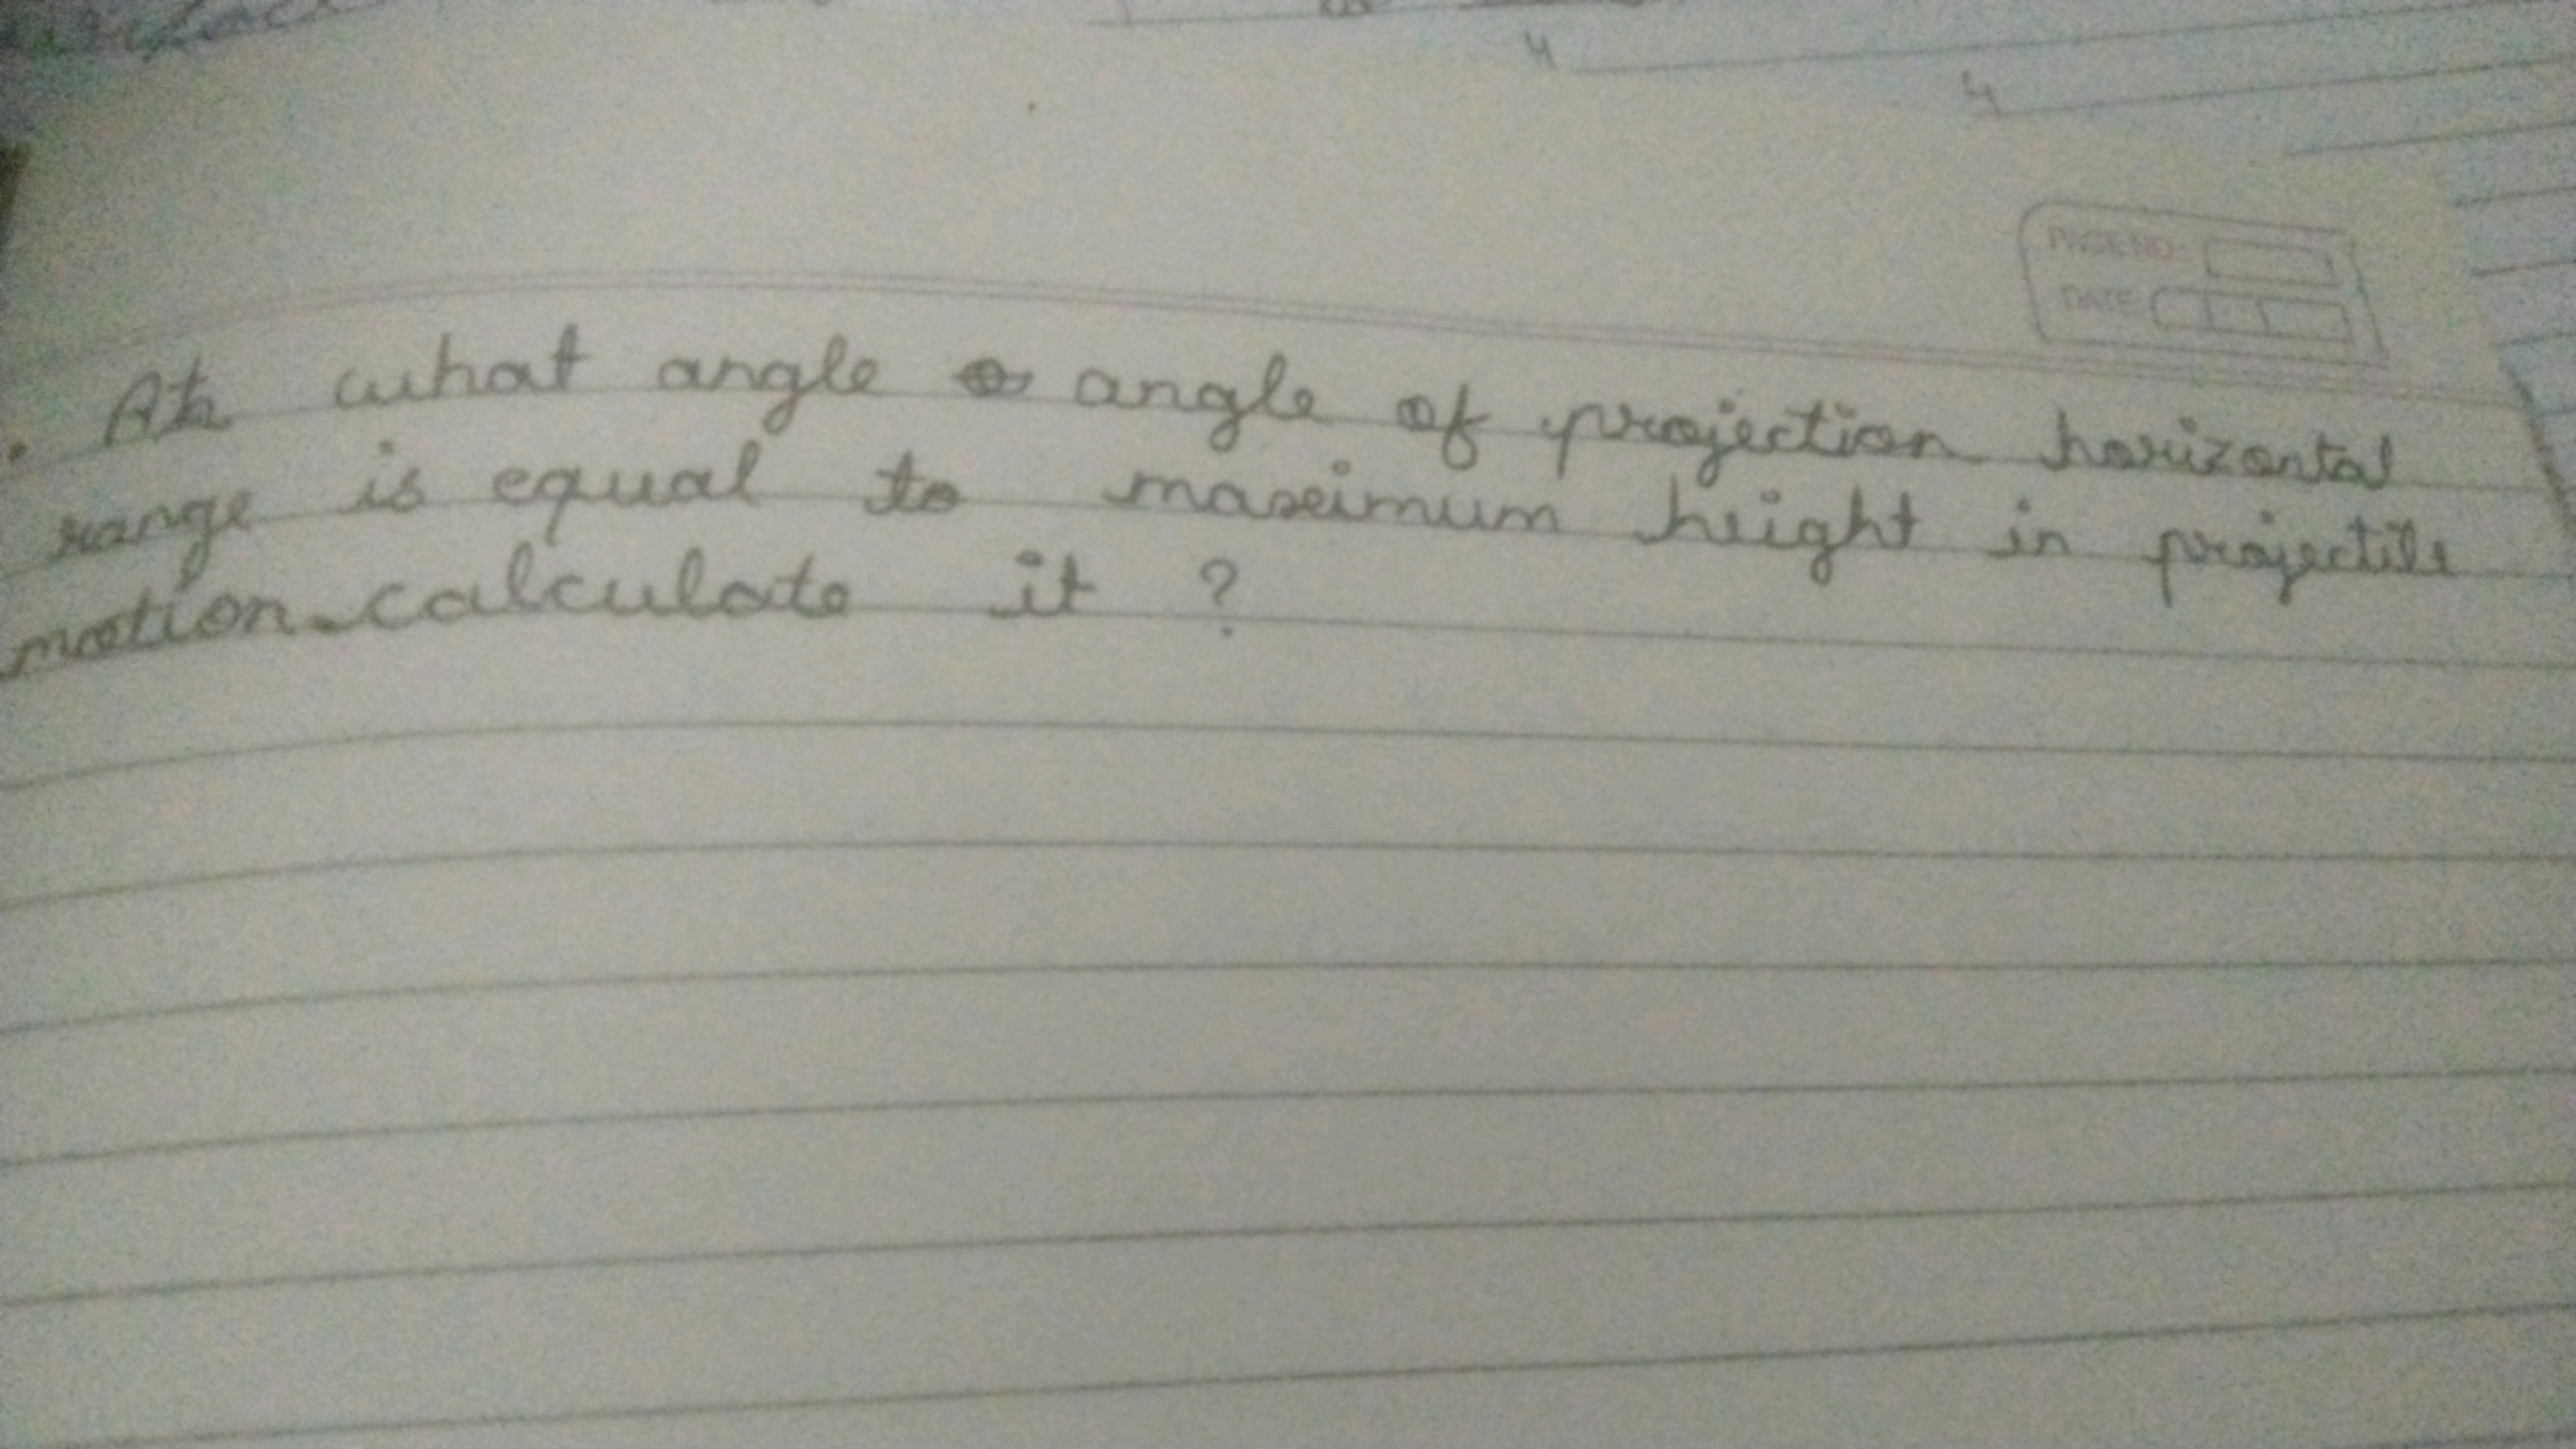 4
4
PAGE NO.:
DATE:
At what angle angle of projection horizontal
range is equal to maximum height in projectile
motion. calculate it ?